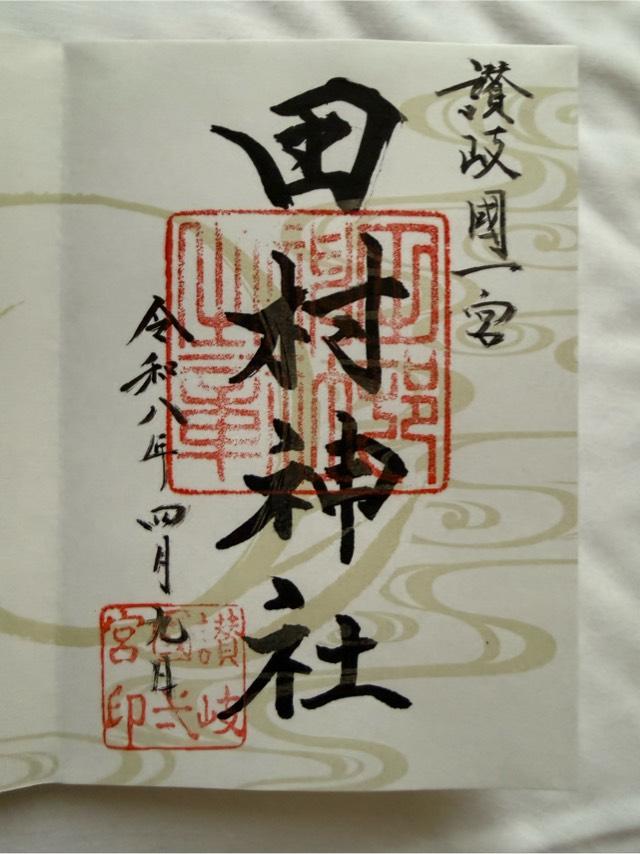 讃岐國一宮
田村神社
令和八年四月九日
讃岐
宮印